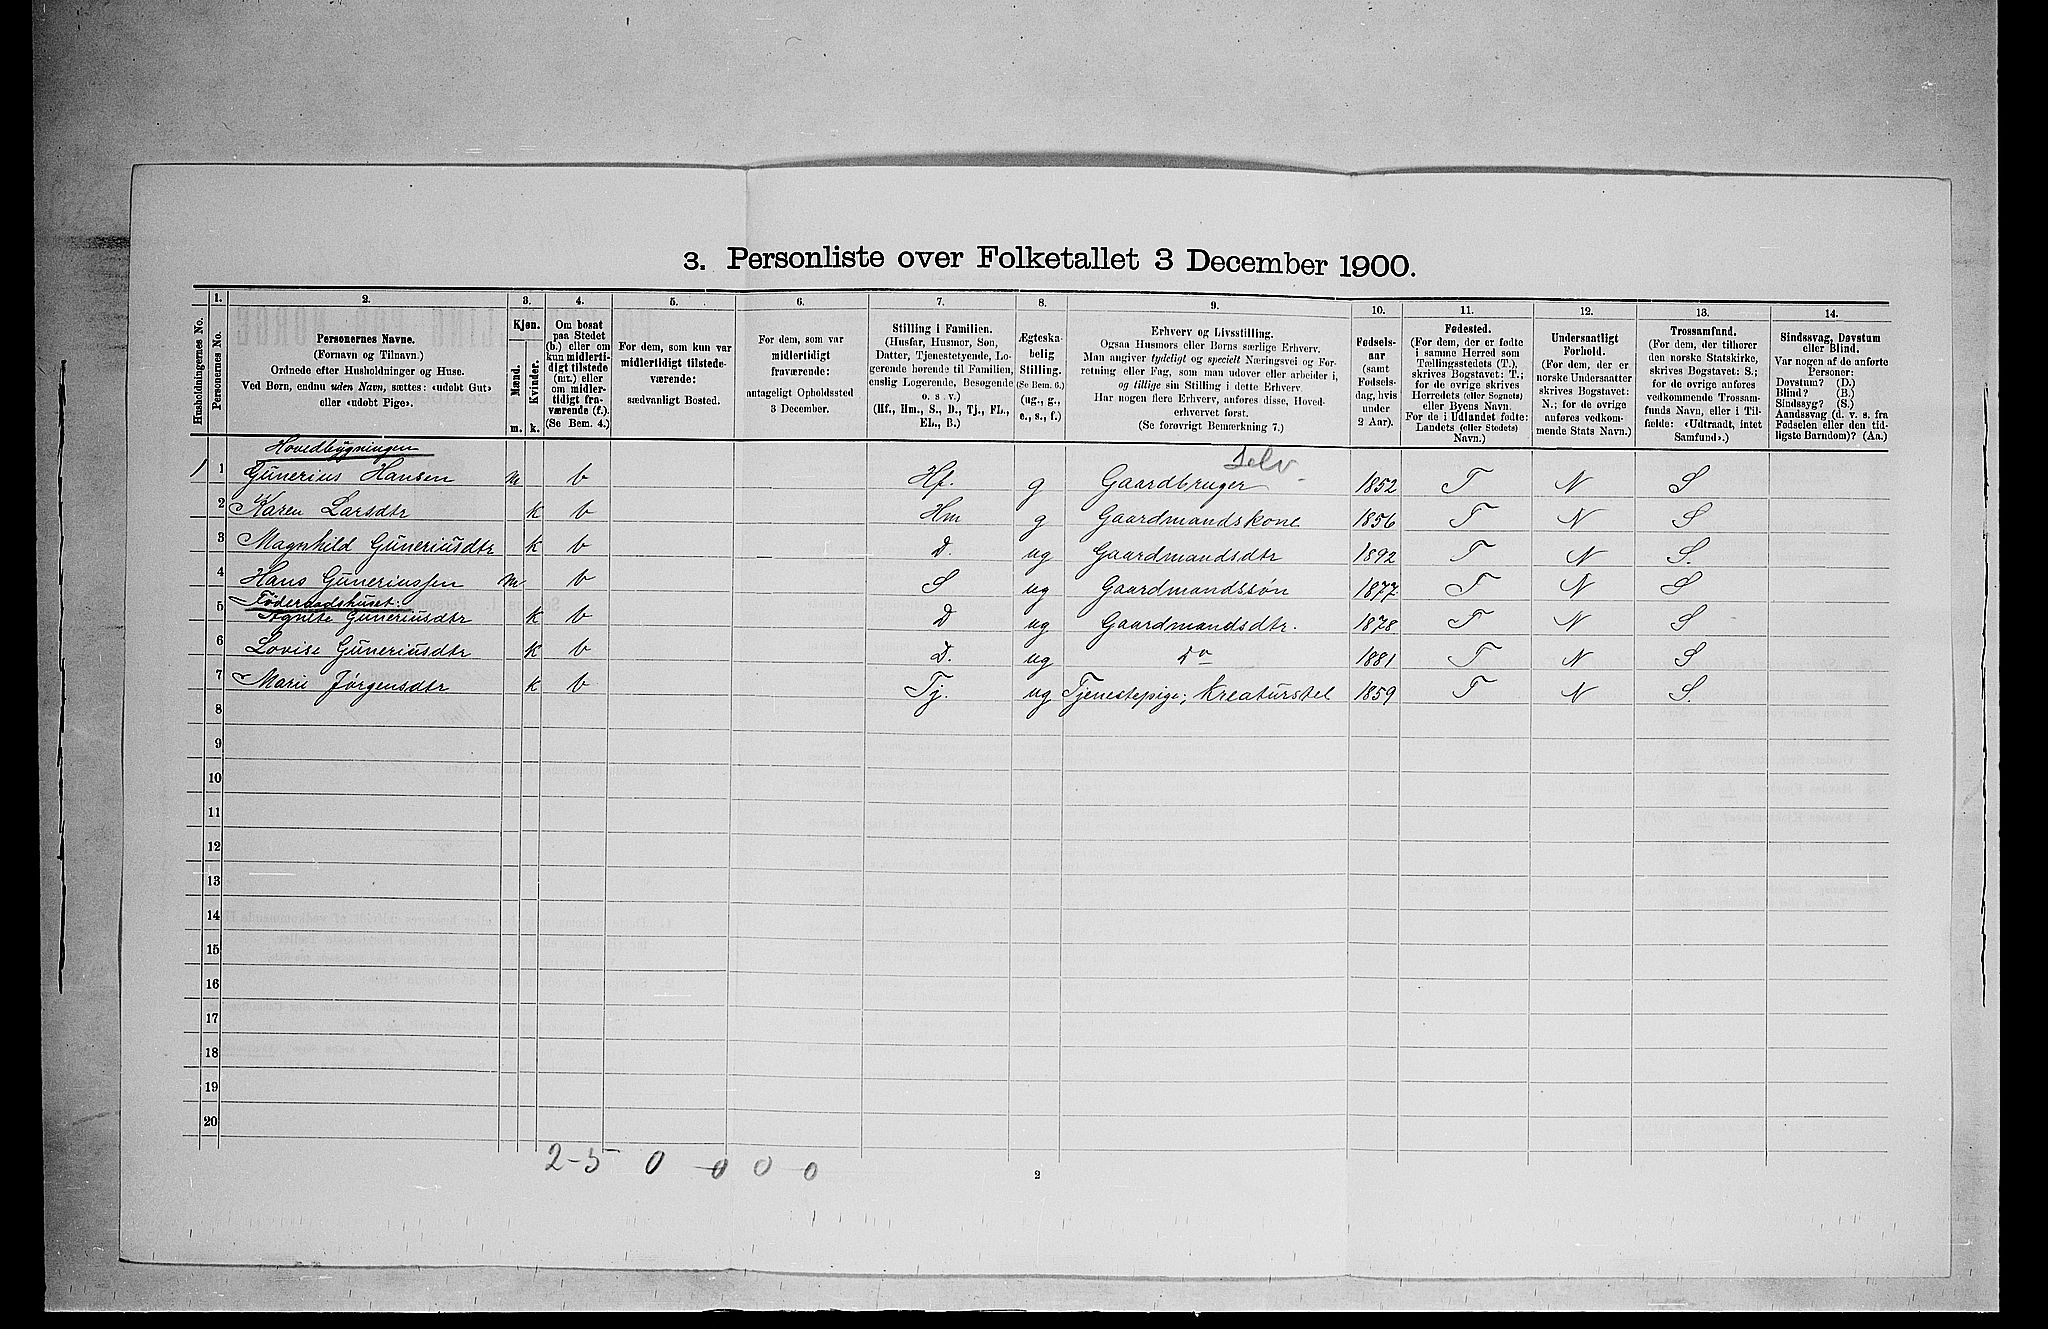 3. Personliste over Folketallet 3 December 1900.
Husholdningernes No.
1.
Personernes No.
2.
Personernes Navne.
(Fornavn og Tilnavn.)
Ordnede efter Husholdninger og Huse.
Ved Børn, endnu uden Navn, sættes: «udøbt Gut»
eller «udøbt Pige».
3.
Kjøn.
Mænd.
Kvinder.
m. k.
4.
Om bosat
paa Stedet
(b.) eller om
kun midlerti-
digt tilstede
(mt.) eller
om midler-
tidigt fra-
værende (f.).
(Se Bem. 4.)
5.
For dem, som kun var
midlertidigt tilstede-
værende:
sædvanligt Bosted.
6.
For dem, som var
midlertidigt
fraværende:
antageligt Opholdssted
3 December.
7.
Stilling i Familien.
(Husfar, Husmor, Søn,
Datter, Tjenestetyende, Lo-
gerende hørende til Familien,
enslig Logerende, Besøgende
o. s. v.)
(Hf., Hm., S., D., Tj., FL.,
EL., B.)
8.
Ægteska-
belig
Stilling.
(Se Bem. 6.)
(ug., g.,
e., s., f.)
9.
Erhverv og Livsstilling.
Ogsaa Husmors eller Børns særlige Erhverv.
Man angiver tydeligt og specielt Næringsvei og For-
retning eller Fag, som man udøver eller arbeider i,
og tillige sin Stilling i dette Erhverv.
Har nogen flere Erhverv, anføres disse, Hoved-
erhvervet først.
(Se forøvrigt Bemærkning 7.)
10.
Fødsels-
aar
(samt
Fødsels-
dag, hvis
under
2 Aar).
11.
Fødested.
(For dem, der er fødte
i samme Herred som
Tællingsstedets (T.),
skrives Bogstavet: T.;
for de øvrige skrives
Herredets (eller Sognets)
eller Byens Navn.
For de i Udlandet fødte:
Landets (eller Stedets)
Navn.)
12.
Undersaatligt
Forhold.
(For dem, der er
norske Undersaatter
skrives Bogstavet:
N.; for de øvrige
anføres vedkom-
mende Stats Navn.)
13.
Trossamfund.
(For dem, der tilhører
den norske Statskirke,
skrives Bogstavet: S.;
for de øvrige anføres
vedkommende Trossam-
funds Navn, eller i Til-
fælde: «Udtraadt, intet
Samfund».)
14.
Sindssvag, Døvstum
eller Blind.
Var nogen af de anførte
Personer:
Døvstum? (D.)
Blind? (B.)
Sindssyg? (S.)
Aandssvag (d. v. s. fra
Fødselen eller den tid-
ligste Barndom)? (Aa.)
Hovedbygningen
Selv
1 1 Gunerius Hansen m b Hf. g Gaardbruger 1852 T N S
2 Karen Larsdtr k b Hm g Gaardmandskone 1856 T N S
3 Magnhild Guneriusdtr k b D. ug Gaardmandsdtr 1892 T N S.
4 Hans Guneriussen m b S ug Gaardmandssøn 1877 T N S
Føderaadshuset:
5 Agnete Guneriusdtr k b D ug Gaardmandsdtr. 1878 T N S
6 Lovise Guneriusdtr k b D. ug do 1881 T N S
7 Marie Jørgensdtr k b Tj. ug Tjenestepige; Kreaturstel 1859 T N S.
8
9
10
11
12
13
14
15
16
17
18
19
20
2-5 0 0 0 0
2